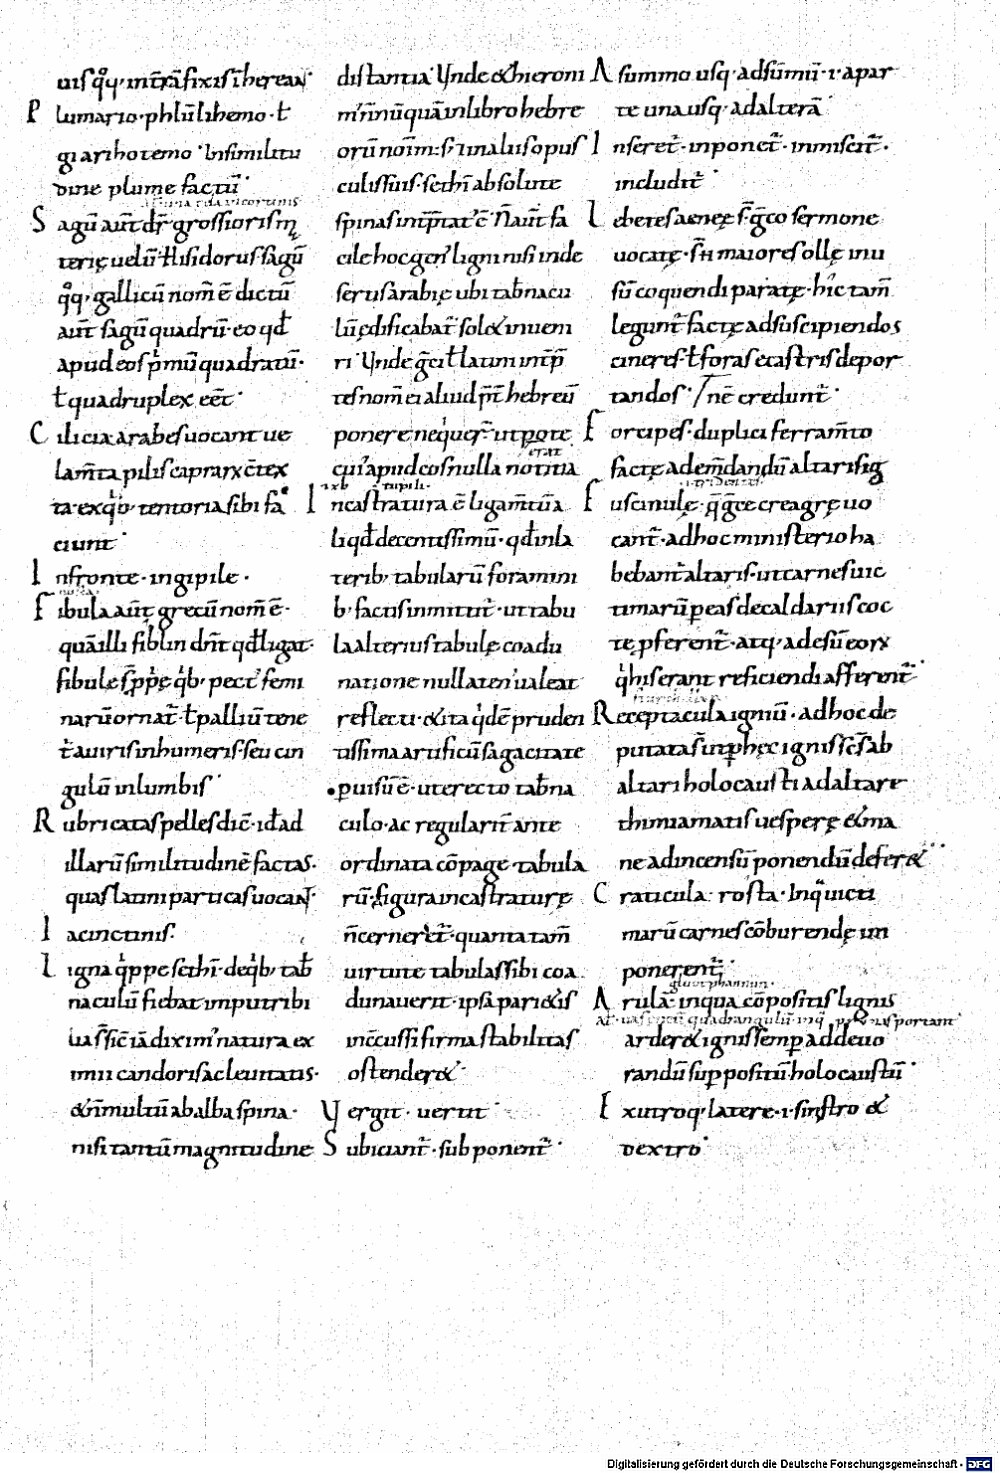 uisq̊q;· intrā fixis īhereaƞ·
Plumario· phlūlihemo· ł
giarihotemo· Insimilitu
dine plume factū·
Sagū aut̄ dr̄ grossioris m̄
terię uelū· ł łisidorus sagū
q̊q; gallicū nom̄ ē dictū
aut̄ sagū quadrū· eo qđ
apud eos p̾mū quadratū·
ł quadruplex eēt·
Cilicia arabes uocant ue
lam̄ta pilis caprarx c̄tex
ta· ex qͥb; tentoria sibi fa
ciunt·
In fronte· in gipile·
Fibula aut̄ grecū nom̄ ē·
quā illi fiblin dnt̄ qđ ligat·
fibulę s̄ p̄pę qͥb; pect᾽ femi
narū ornat̄· ł palliū tene
t̄ a uiris in humeris· seu cin
gulū in lumbis·
Rubricatas pelles dic̄· id ad
illarū similitudinē factas·
quas latini particas uocaƞ·
Iacinctinis·
Ligna qͥppe sethī· deqͥb; tab̄
naculū fiebat imputribi
lia s̄ sic̄ iā dixim᾽ natura ex
imii candoris ac leuitatis·
& n̄ multū ab alba spina·
nisi tantū magnitudine
distantia· Unde & hieroni
m᾽ n̄nūquā in libro hebre
orū noīm· s̄
culissuis· sethī absolute
spinas int̄ptat᾽ ē· N̄ aut̄ fa
cile hoc gen᾽ ligni nisi in de
sertis arabię ubi tab̄nacu
lū ędificabat̄ sol& inueni
ri· Unde gc̄i ł latini int̄p̄
tes nom̄ ei aliud pt̄ hebreū
ponere nequer̄· utpote
erat
cui᾽ apud eos nulla notitia
Incastratura ē ligam̄tū a
liqđ decentissimū· qđ in la
terib; tabularū foramini
b; factis inmittit̄· ut tabu
la alterius tabulę coadu
natione nullaten᾽ ualeat
reflecti· & ita qͥdē pruden
tissima artificū sagacitate
puisū ē· ut erecto tab̄na
culo· ac regularit̄ ante
ordinata cōpage· tabula
rū· figura incastraturę
n̄ cerneret̄· quanta tam̄
uirtute tabulas sibi coa
dunauerit· ipsā pari&is
inc̄cussi firma stabilitas
ostender&·
Uergit· uertit·
Subiciant̄· subponent̄·
A summo usq; ad sūmū· ·i· a par
te una usq; ad alterā·
Inseret̄· inponet̄· inmiscit̄·
includit̄·
Lebetes aenęę s̄ gc̄o sermone
uocatę· s̄ħ maiores ollę in u
sū coquendi paratę· hic̄ tam̄
legunt̄ factę ad suscipiendos
cineres· ł foras e castris depor
tandos· nē credunt̄·
Forcipes· duplici ferram̄to
factę ad em̄dandū altaris ig
i· tridentes
Fuscinulę· q̄ gc̄e creagrę uo
cant̄· ad hoc ministerio ha
bebant̄ altaris· ut carnes uic
timarū p eas de caldariis coc
tę pferent̄· atq; ad esū eorx
qͥ hͥs erant reficiendi afferent̄·
Receptacula igniū· ad hoc de
putata s̄
altari holocausti ad altare
thimiamatis uespere & ma
ne ad incensū ponendū defer&·
Craticula· rosta· In qͣ uicti
marū carnes cōburendę im
ponerent̄·
gluotphannun·
Arulā· in qua cōpositis lignis
Al· uas ęreū quadrangulū in qͦ portant
arder& ignis semp ad deuo
randū suppositū holocaustū·
Ex utroq; latere· ·i· sinistro &
dextro·
Digitalisierung gefördert durch die Deutsche Forschungsgemeinschaft - DFG